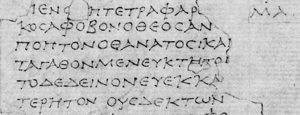 ΗΤΕΤΡΑΦΑΡ ΜΑ
ΚΟΣΑΦΟΒΟΝΟΘΕΟΣΑΝ
ΠΟΠΤΟΝΟΘΑΝΑΤΟΣΙΚΑΙ
ΤΑΓΑΘΟΝΜΕΝΕΥΚΤΗΤΟΙ
ΤΟΔΕΔΕΙΝΟΝΕΥΕΚΚΑ
ΤΕΡΗΤΟΝ ΟΥΣΔΕΚΤΩΝ